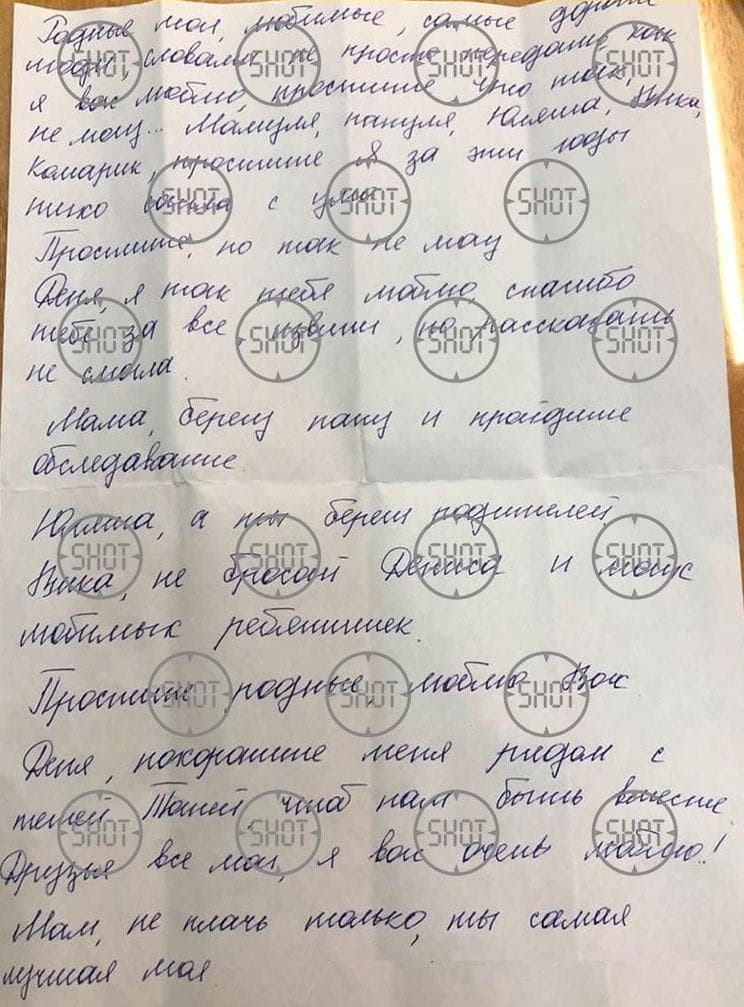 Родные мои, любимые, самые дорогие
люди, словами не просто передать как
я вас люблю, простите что так,
не могу... Мамуля, папуля, Юляша, Вика,
Комарик, простите я за эти годы
сошла с ума
Простите, но так не могу
Деня, я так тебя люблю, спасибо
тебе за все, извини, но рассказать
не смогла.
Мама, берегу папу и пройдите
обследавание
Юляша, а ты береги родителей
Вика, не бросай Дениса и моих
любимых ребятишек.
Простите, родные, люблю Вас
Деня, похораните меня рядом с
тётей Таней, чтоб нам быть вместе
Друзья все мои, я вас очень люблю!
Мам, не плачь только, ты самая
лучшая моя
SHOT SHOT SHOT SHOT
SHOT SHOT SHOT
SHOT SHOT SHOT SHOT
SHOT SHOT SHOT SHOT
SHOT SHOT SHOT
SHOT SHOT SHOT SHOT